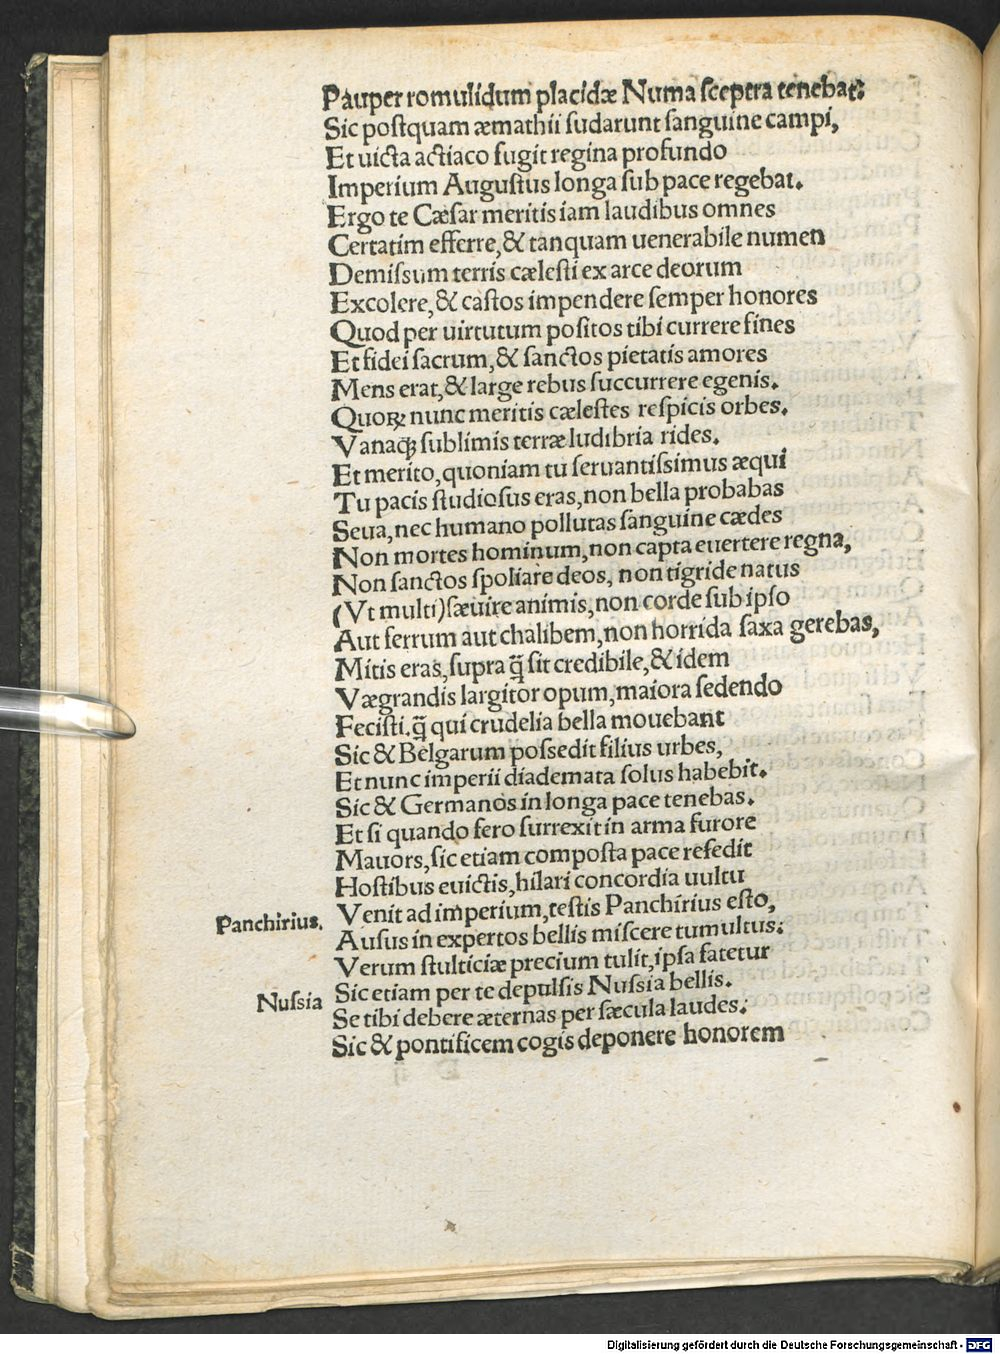 Pauper romulidum placidæ Numa ſceptra tenebat:
Sic poſtquam æmathii ſudarunt ſanguine campi,
Et uicta actiaco fugit regina profundo
Imperium Auguſtus longa ſub pace regebat.
Ergo te Cæſar meritis iam laudibus omnes
Certatim efferre, & tanquam uenerabile numen
Demiſsum terris cæleſti ex arce deorum
Excolere, & caſtos impendere ſemper honores
Quod per uirtutum poſitos tibi currere fines
Et fidei ſacrum, & ſanctos pietatis amores
Mens erat, & large rebus ſuccurrere egenis.
Quoꝝ nunc meritis cæleſtes reſpicis orbes.
Vanaqꝫ ſublimis terræ ludibria rides.
Et merito, quoniam tu ſeruantiſsimus æqui
Tu pacis ſtudioſus eras, non bella probabas
Seua, nec humano pollutas ſanguine cædes
Non mortes hominum, non capta euertere regna,
Non ſanctos ſpoliare deos, non tigride natus
(Vt multi) ſæuire animis, non corde ſub ipſo
Aut ferrum aut chalibem, non horrida ſaxa gerebas,
Mitis eras, ſupra q̃ ſit credibile, & idem
Vægrandis largitor opum, maiora ſedendo
Feciſti, q̃ qui crudelia bella mouebant
Sic & Belgarum poſſedit filius urbes,
Et nunc imperii diademata ſolus habebit.
Sic & Germanos in longa pace tenebas.
Et ſi quando fero ſurrexit in arma furore
Mauors, ſic etiam compoſta pace reſedit
Hoſtibus euictis, hilari concordia uultu
Panchirius. Venit ad imperium, teſtis Panchirius eſto,
Auſus in expertos bellis miſcere tumultus:
Verum ſtulticiæ precium tulit, ipſa fatetur
Nuſsia Sic etiam per te depulſis Nuſsia bellis.
Se tibi debere æternas per ſæcula laudes:
Sic & pontificem cogis deponere honorem
Digitalisierung gefördert durch die Deutsche Forschungsgemeinschaft - DFG